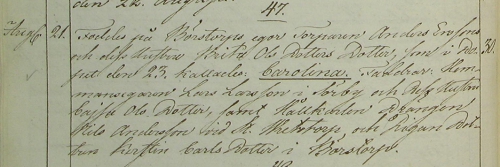 den 22. Augusti
47.
Aug. 21. Föddes på Börstorps egor Torparen Anders Ersons
och dess Hustrus Britta Ols Dotters Dotter, som i Do- 30.
put den 23. kallades: Carolina. Faddrar: Hem-
mansegaren Lars Larsson i Torby och dess Hustru
Cajsa Ols Dotter, samt Hållkarlen Drängen
Nils Andersson vid St. Hvetetorp, och Pigan Dot-
tren Kjerstin Carls Dotter i Börstorp.